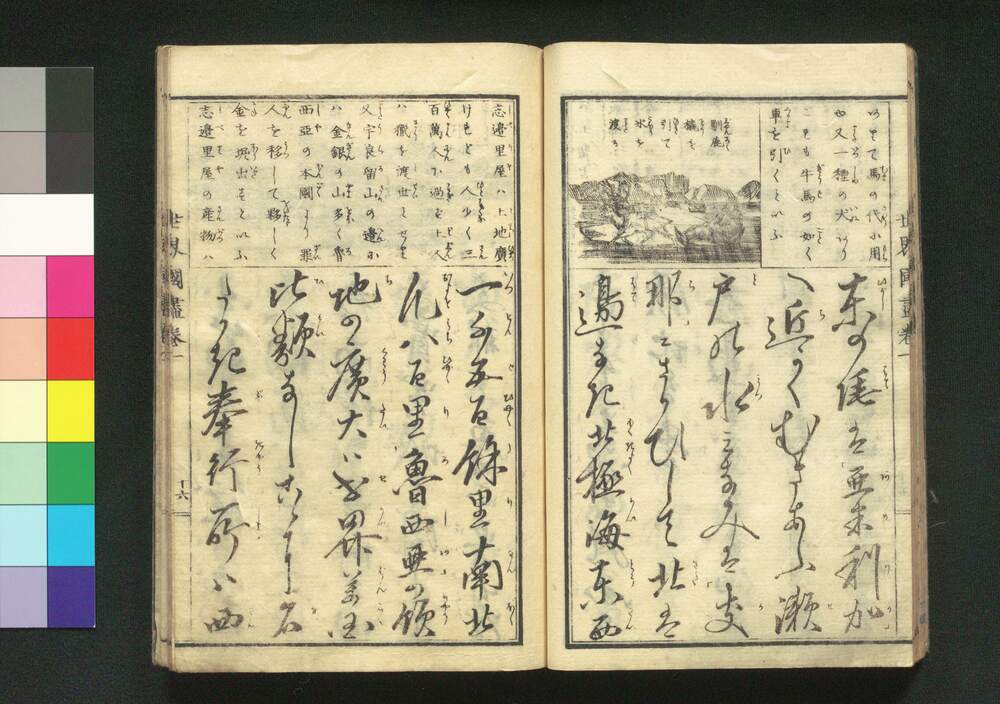 世界國盡卷一
也又一種の犬あり
これも牛馬の如く
車を引くといふ
馴鹿
橇を
引て
氷を
渡る
東の隅は亜米利加
へ近くむかふ瀬
戸の水ミなみは支
那にさかひして北は
邊なき北極海東西
志邊里屋ハ土地廣
けれども人少く三
百萬人に過き土人
ハ獵を渡世とせり
又宇良留山の邊に
ハ金銀の山多く魯
西亜の本國より罪
人を移して夥しく
金を堀出すといふ
志邊里屋の産物ハ
一千五百餘里南北
凡八百里魯西亜の領
地の廣大ハ世界萬国
比類なしこゝに名
たかき奉行所ハ西
世界國盡卷一
十六